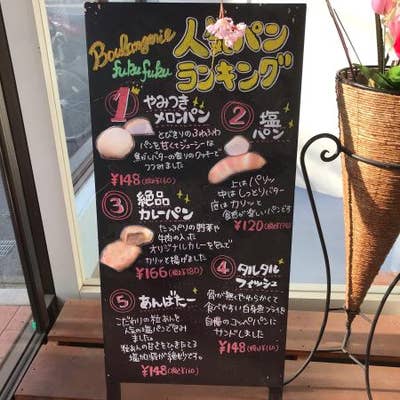 Boulangerie
fuku fuku
人気パン
ランキング
1 やみつき
メロンパン
とびきりのふわふわ
パンを甘くてジューシーな
焦がしバターの香りのクッキーで
つつみました
¥148(税込¥160)
2 塩
パン
上はパリッ
中はしっとりバター
底はカリッと
食感が楽しいパンです
¥120
3 絶品
カレーパン
たっぷりの野菜や
牛肉の入った
オリジナルカレーを包んで
カリッと揚げました
¥166(税込¥180)
4 タルタル
フィッシュ
骨が無くやわらかくて
食べやすい白身魚フライを
自慢のコッペパンに
サンドしました
¥148(税込¥160)
5 あんばたー
こだわりの粒あんを
人気の塩パンで包み
ました
粒あんの甘さをひきたてる
塩加減が絶妙です
¥148(税込¥160)